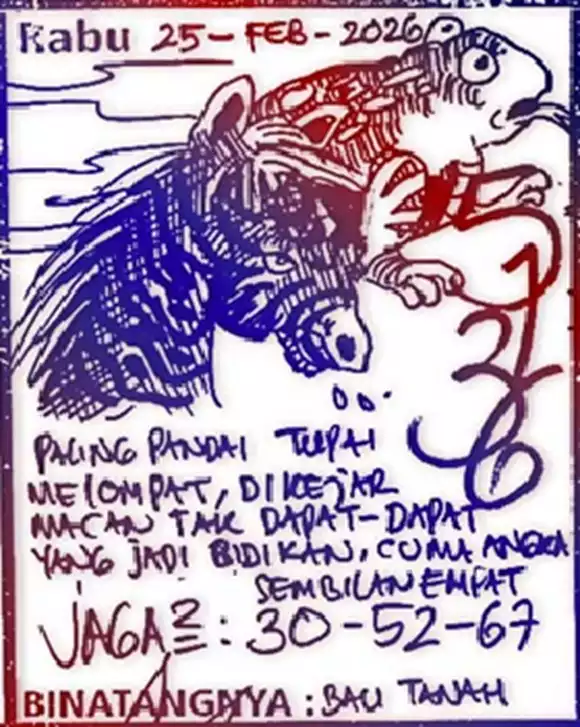 Rabu 25-FEB-2026
PALING PANDAI TUPAI
MELOMPAT, DIKEJAR
MACAN TAK DAPAT-DAPAT
YANG JADI BIDIKAN, CUMA ANGKA
SEMBILAN EMPAT
JAGA2 : 30-52-67
BINATANGNYA : BAU TANAH